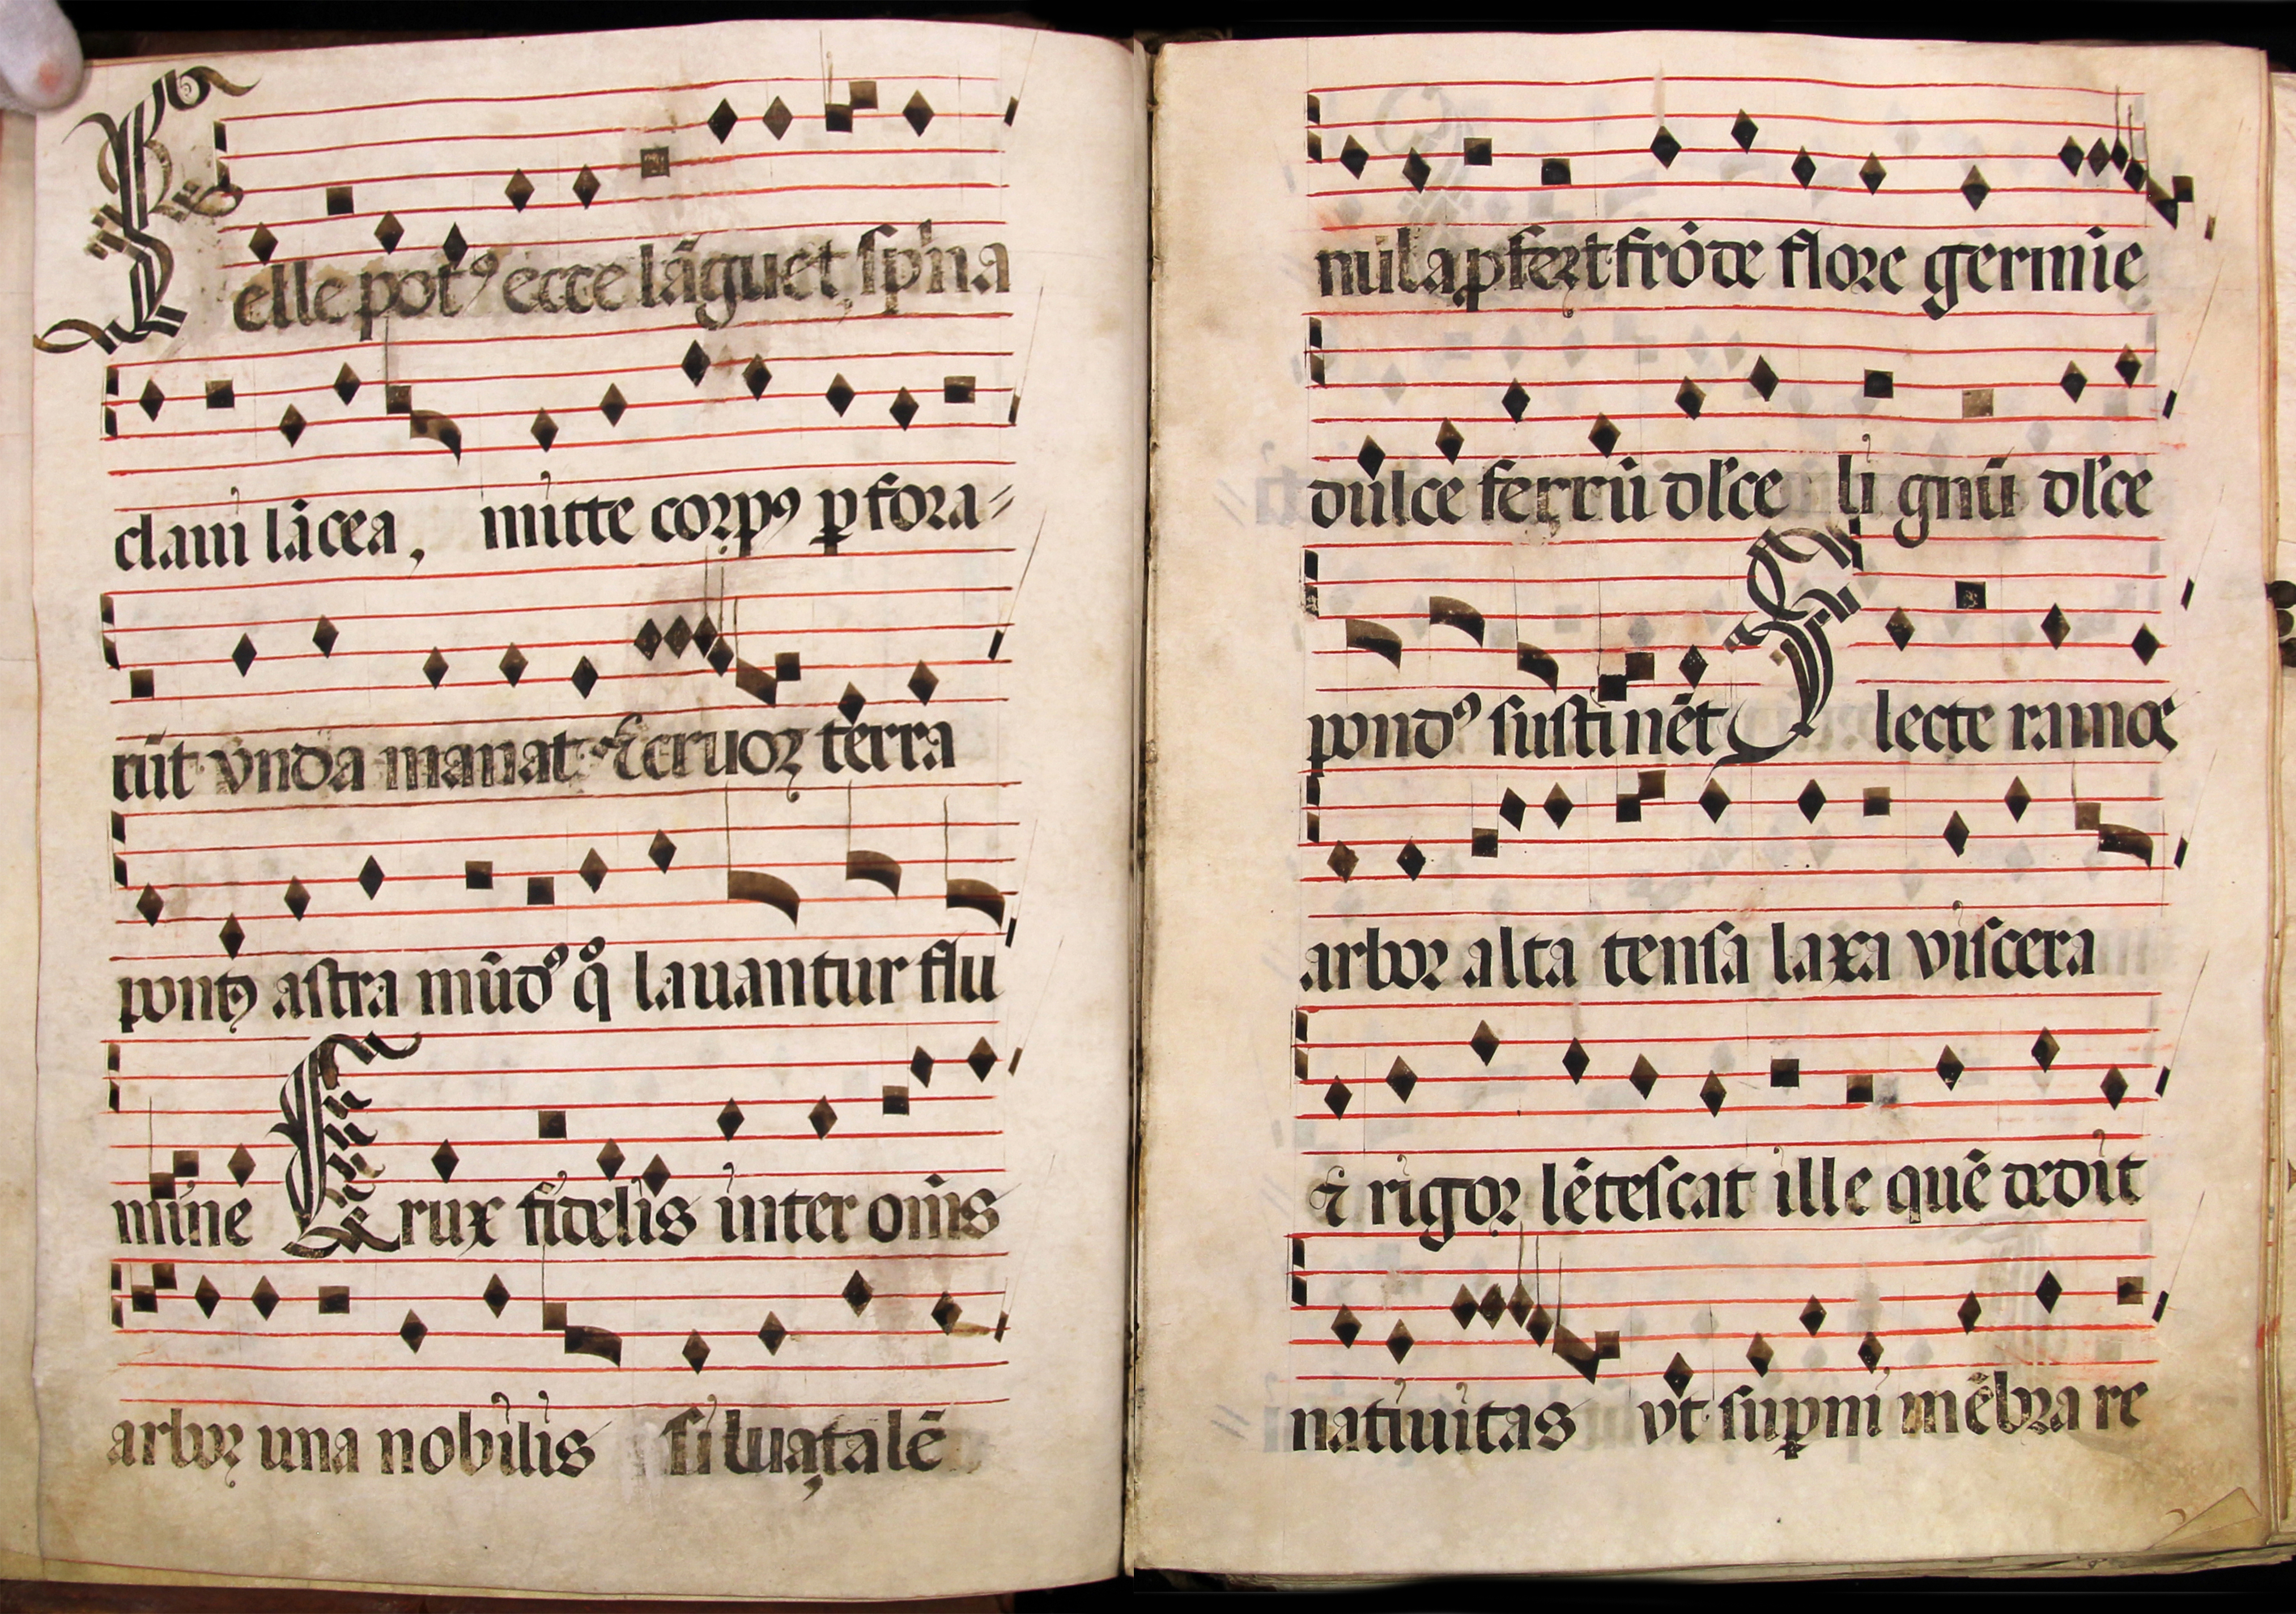 Felle potꝰ ecce lāguet, spīna
claui lācea, mitte corpꝰ ꝑfora⸗
rūt vnda manat & cruor terra
pontꝰ astra mūdꝰ q̊ lauantur flu
mine Crux fidelis inter om̄s
arbor una nobilis silua talē
nūla ꝓfert frōde flore germīe
dulce ferrū dl̄ce lignū dl̄ce
pondꝰ sustinēt Flecte ramos
arbor alta tensa laxa viscera
& rigor lētescat ille quē dedit
natiuitas vt suꝑni mēbra re